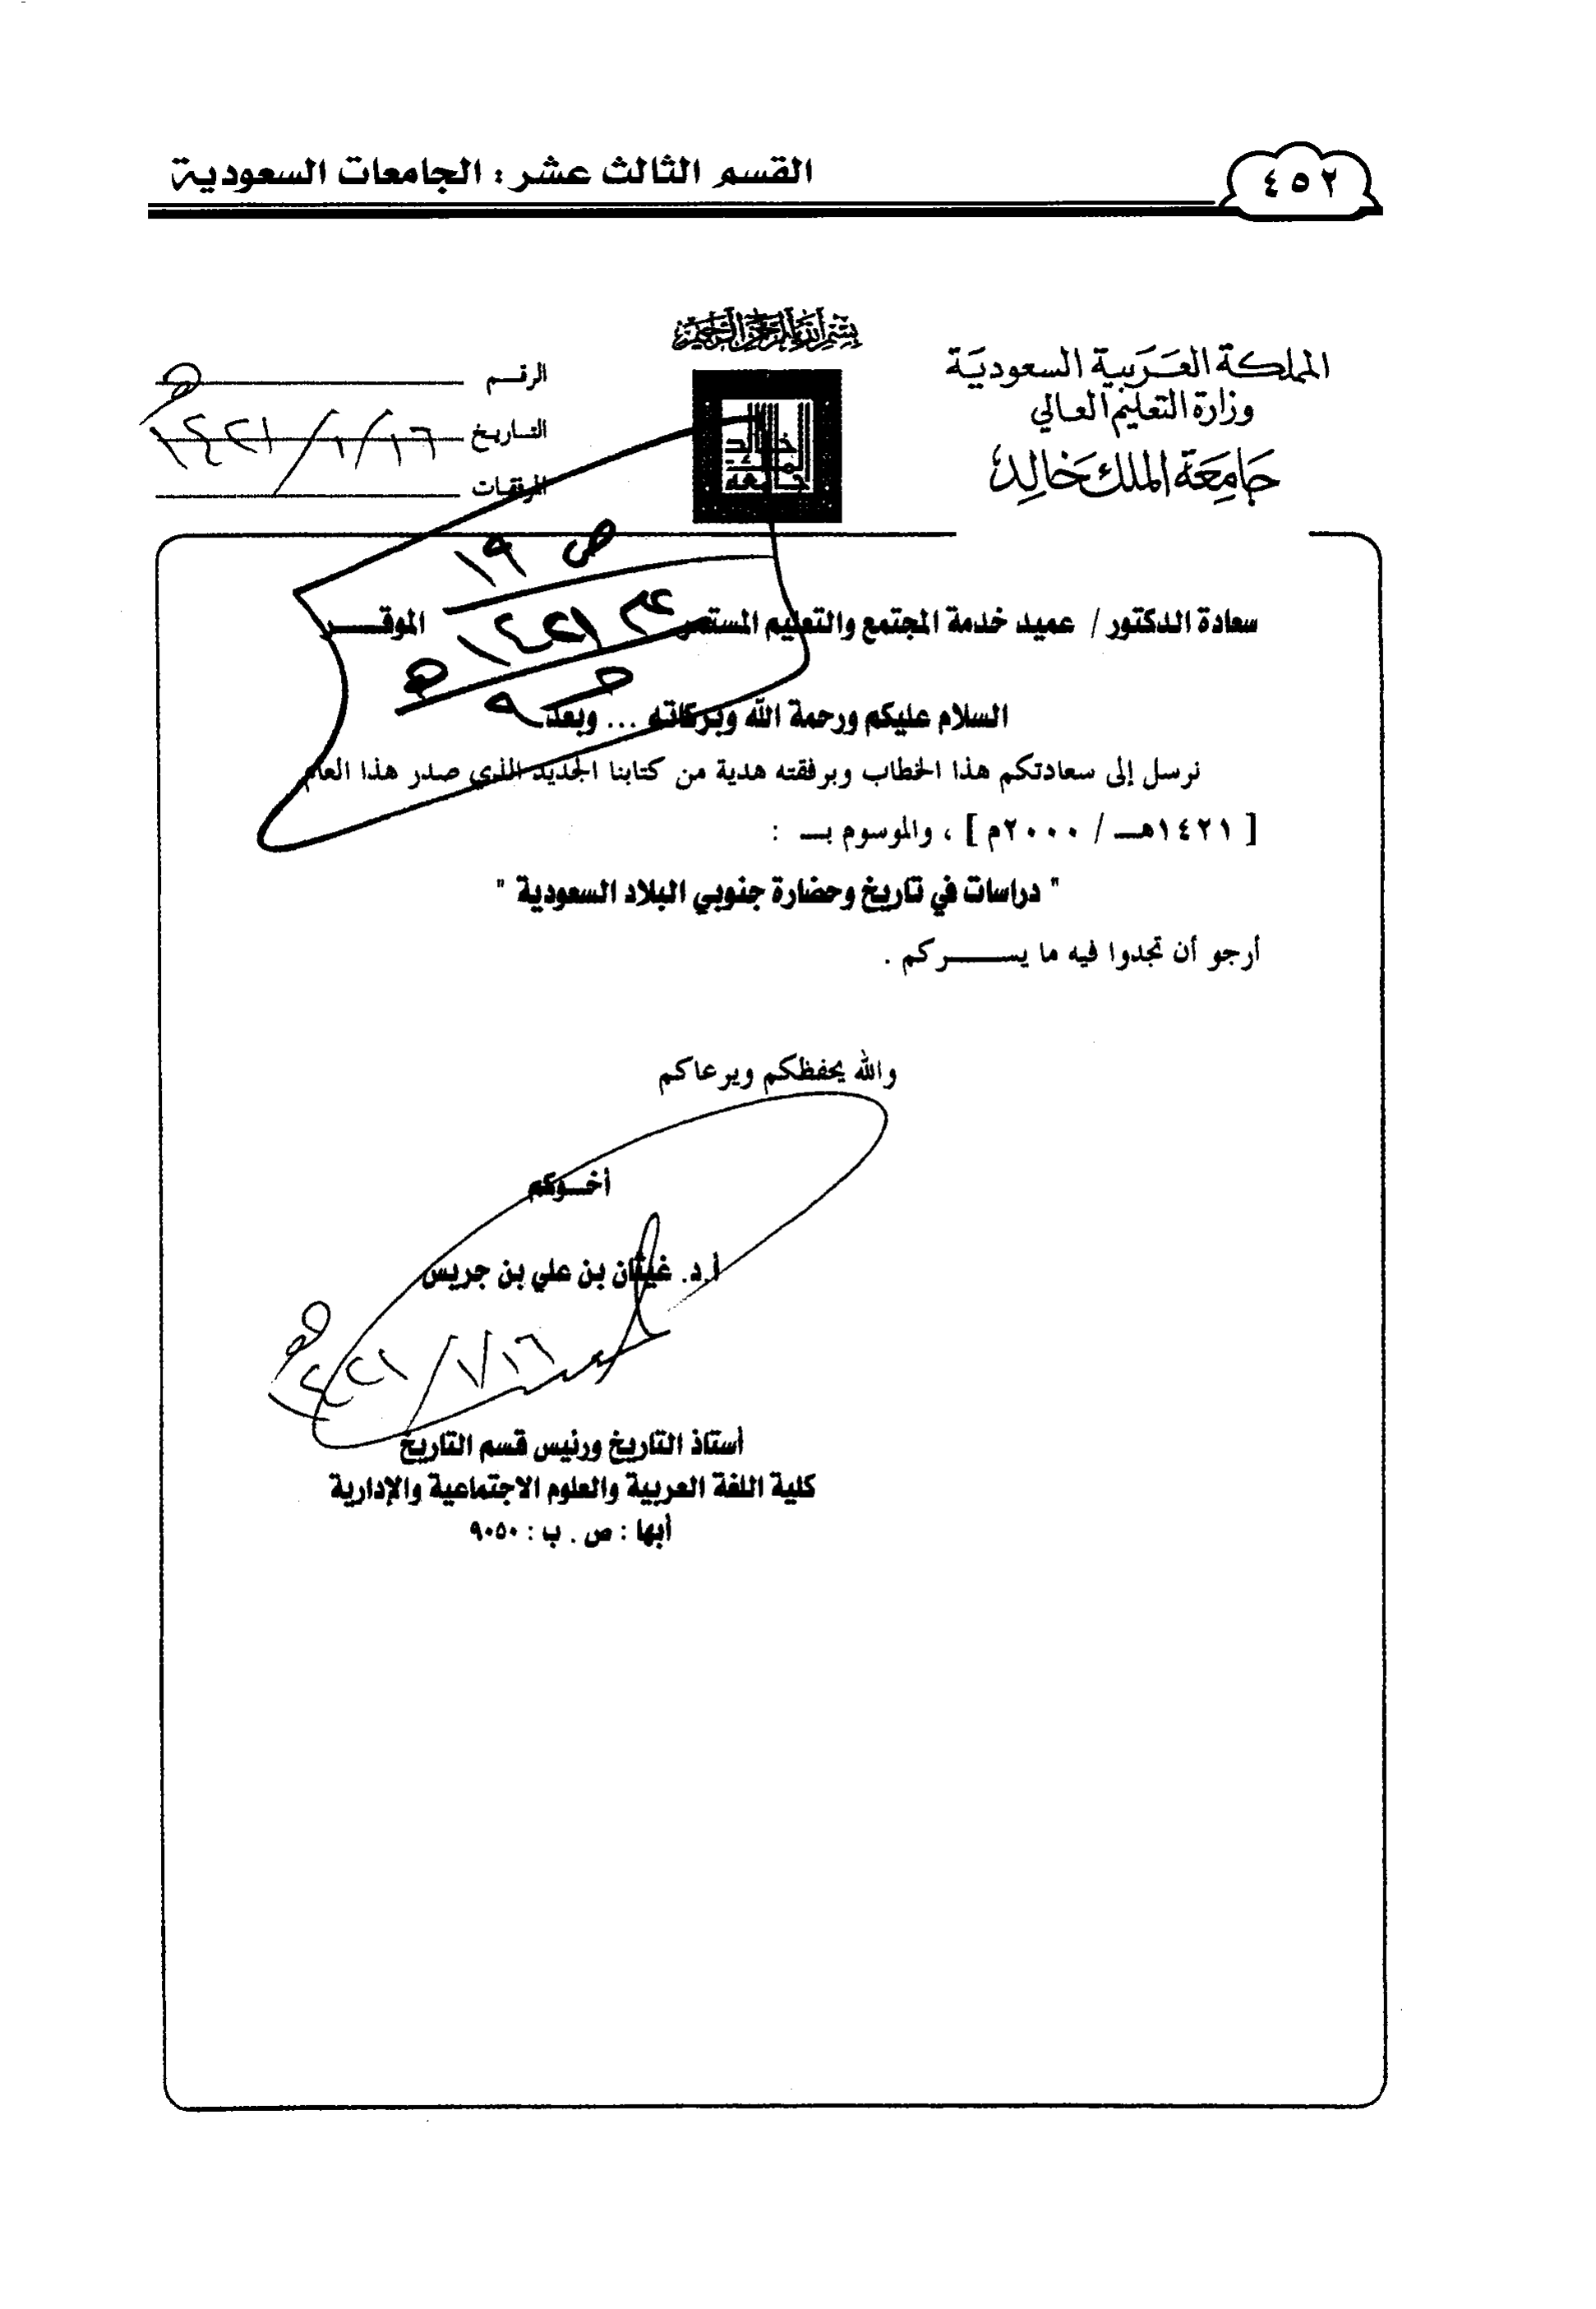 ٤٥٢
القسم الثالث عشر : الجامعات السعودية
بسم الله الرحمن الرحيم
المملكة العربية السعودية
وزارة التعليم العالي
جامعة الملك خالد
خالد
الملك
جامعة
الرقم
التاريخ ١٦/١/١٤٢١هـ
المرفقات
ص ١٩
١٤٢١هـ
سعادة الدكتور / عميد خدمة المجتمع والتعليم المستمر الموقـــر
السلام عليكم ورحمة الله وبركاته ... وبعد
نرسل إلى سعادتكم هذا الخطاب وبرفقته هدية من كتابنا الجديد الذي صدر هذا العام
[ ١٤٢١هـ / ٢٠٠٠م ] ، والموسوم بـ :
" دراسات في تاريخ وحضارة جنوبي البلاد السعودية "
أرجو أن تجدوا فيه ما يســـركم .
والله يحفظكم ويرعاكم
أخــوكم
أ.د. غيثان بن علي بن جريس
١٦/١/١٤٢١هـ
أستاذ التاريخ ورئيس قسم التاريخ
كلية اللغة العربية والعلوم الاجتماعية والإدارية
أبها : ص . ب : ٩٠٥٠